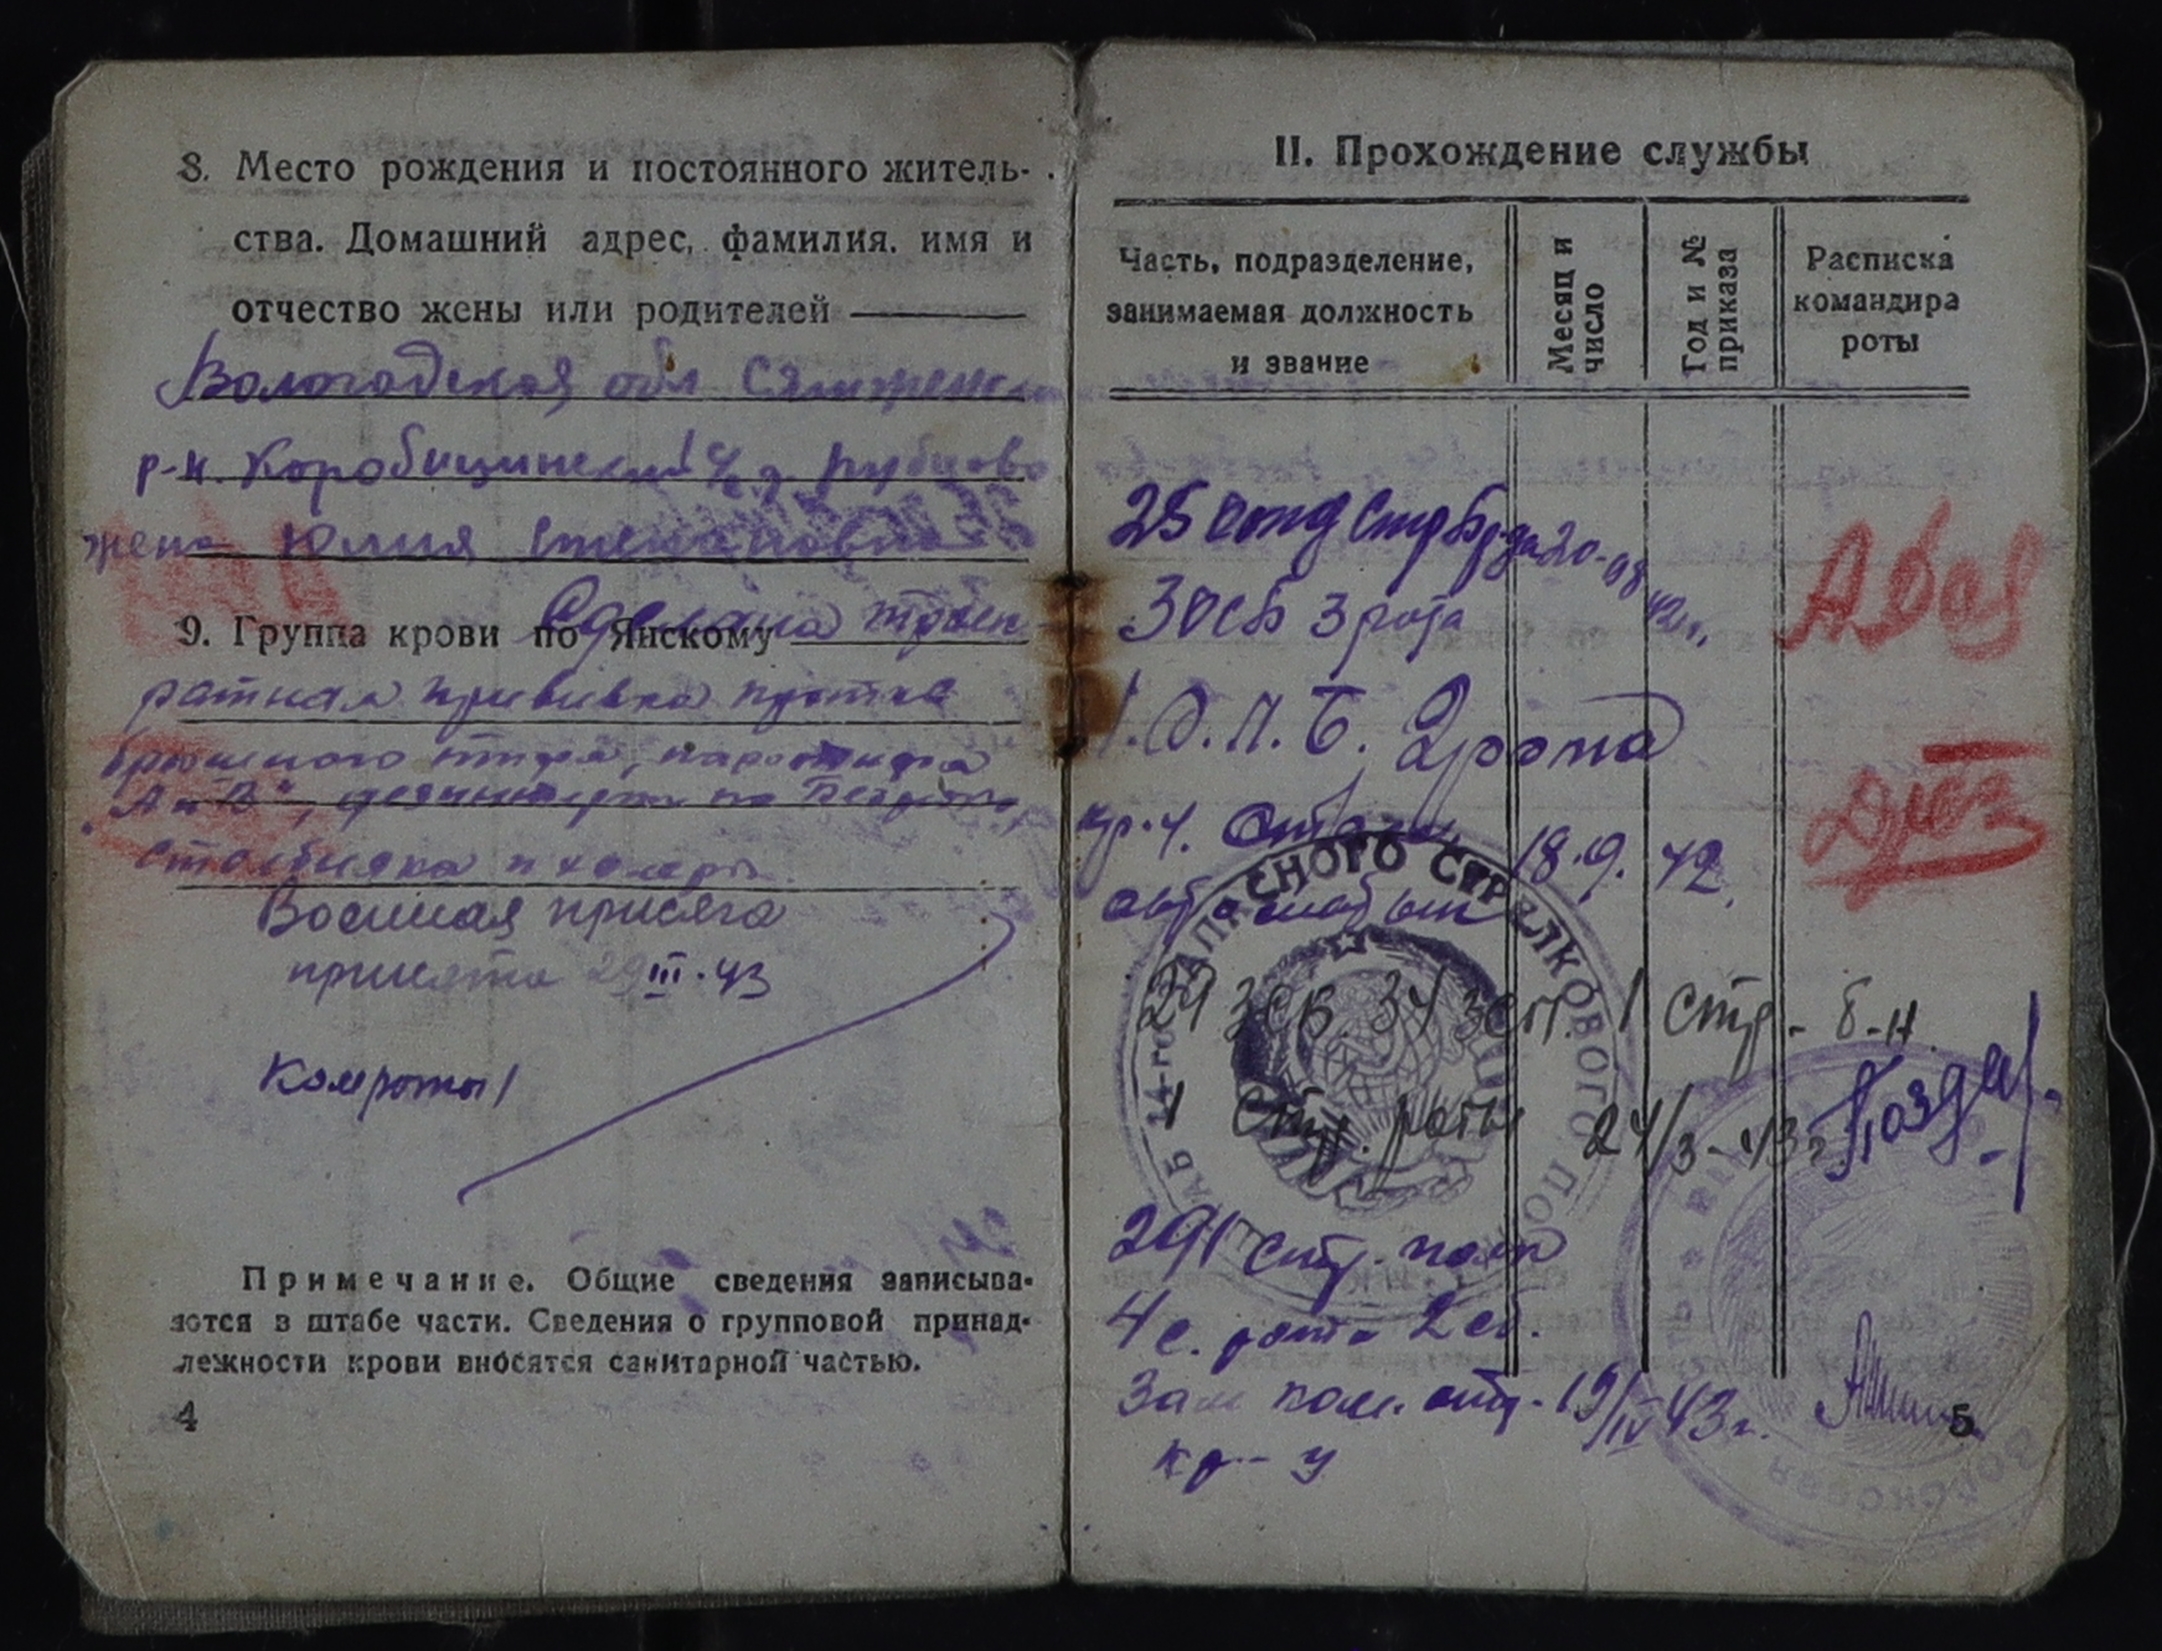 8. Место рождения и постоянного житель-
ства. Домашний адрес, фамилия, имя и
отчество жены или родителей
Вологодская обл Сямженский
р-н. Коробицинский с/с д. Рубцово
жена Юлия Степановна
9. Группа крови по Янскому
Сделана трёхк-
ратная прививка против
брюшного тифа, паратифа
"А и В", дезинтерии по Безредко,
столбняка и холеры.
Военная присяга
принята 29 III. 43
Комроты 1
Примечание. Общие сведения записыва-
ются в штабе части. Сведения о групповой принад-
лежности крови вносятся санитарной частью.
4
II. Прохождение службы
Часть, подразделение,
занимаемая должность
и звание
Месяц и
число
Год и №
приказа
Расписка
командира
роты
25 отд Стр Бр-да 20-08 42 г.
3 осб 3 рота
1. О. Л. Б. 2 рота
кр-ц. Стрел 18.9. 42
29 зсб 34 зсп. 1 стр - б-н
1 Стр. роты 24/3-43 г.
291 стр. полк
4 с. рота 2 сб.
Зам ком. отд - 19/IV 43 г.
кр - ц
ЗАПАСНОГО СТРЕЛКОВОГО
5